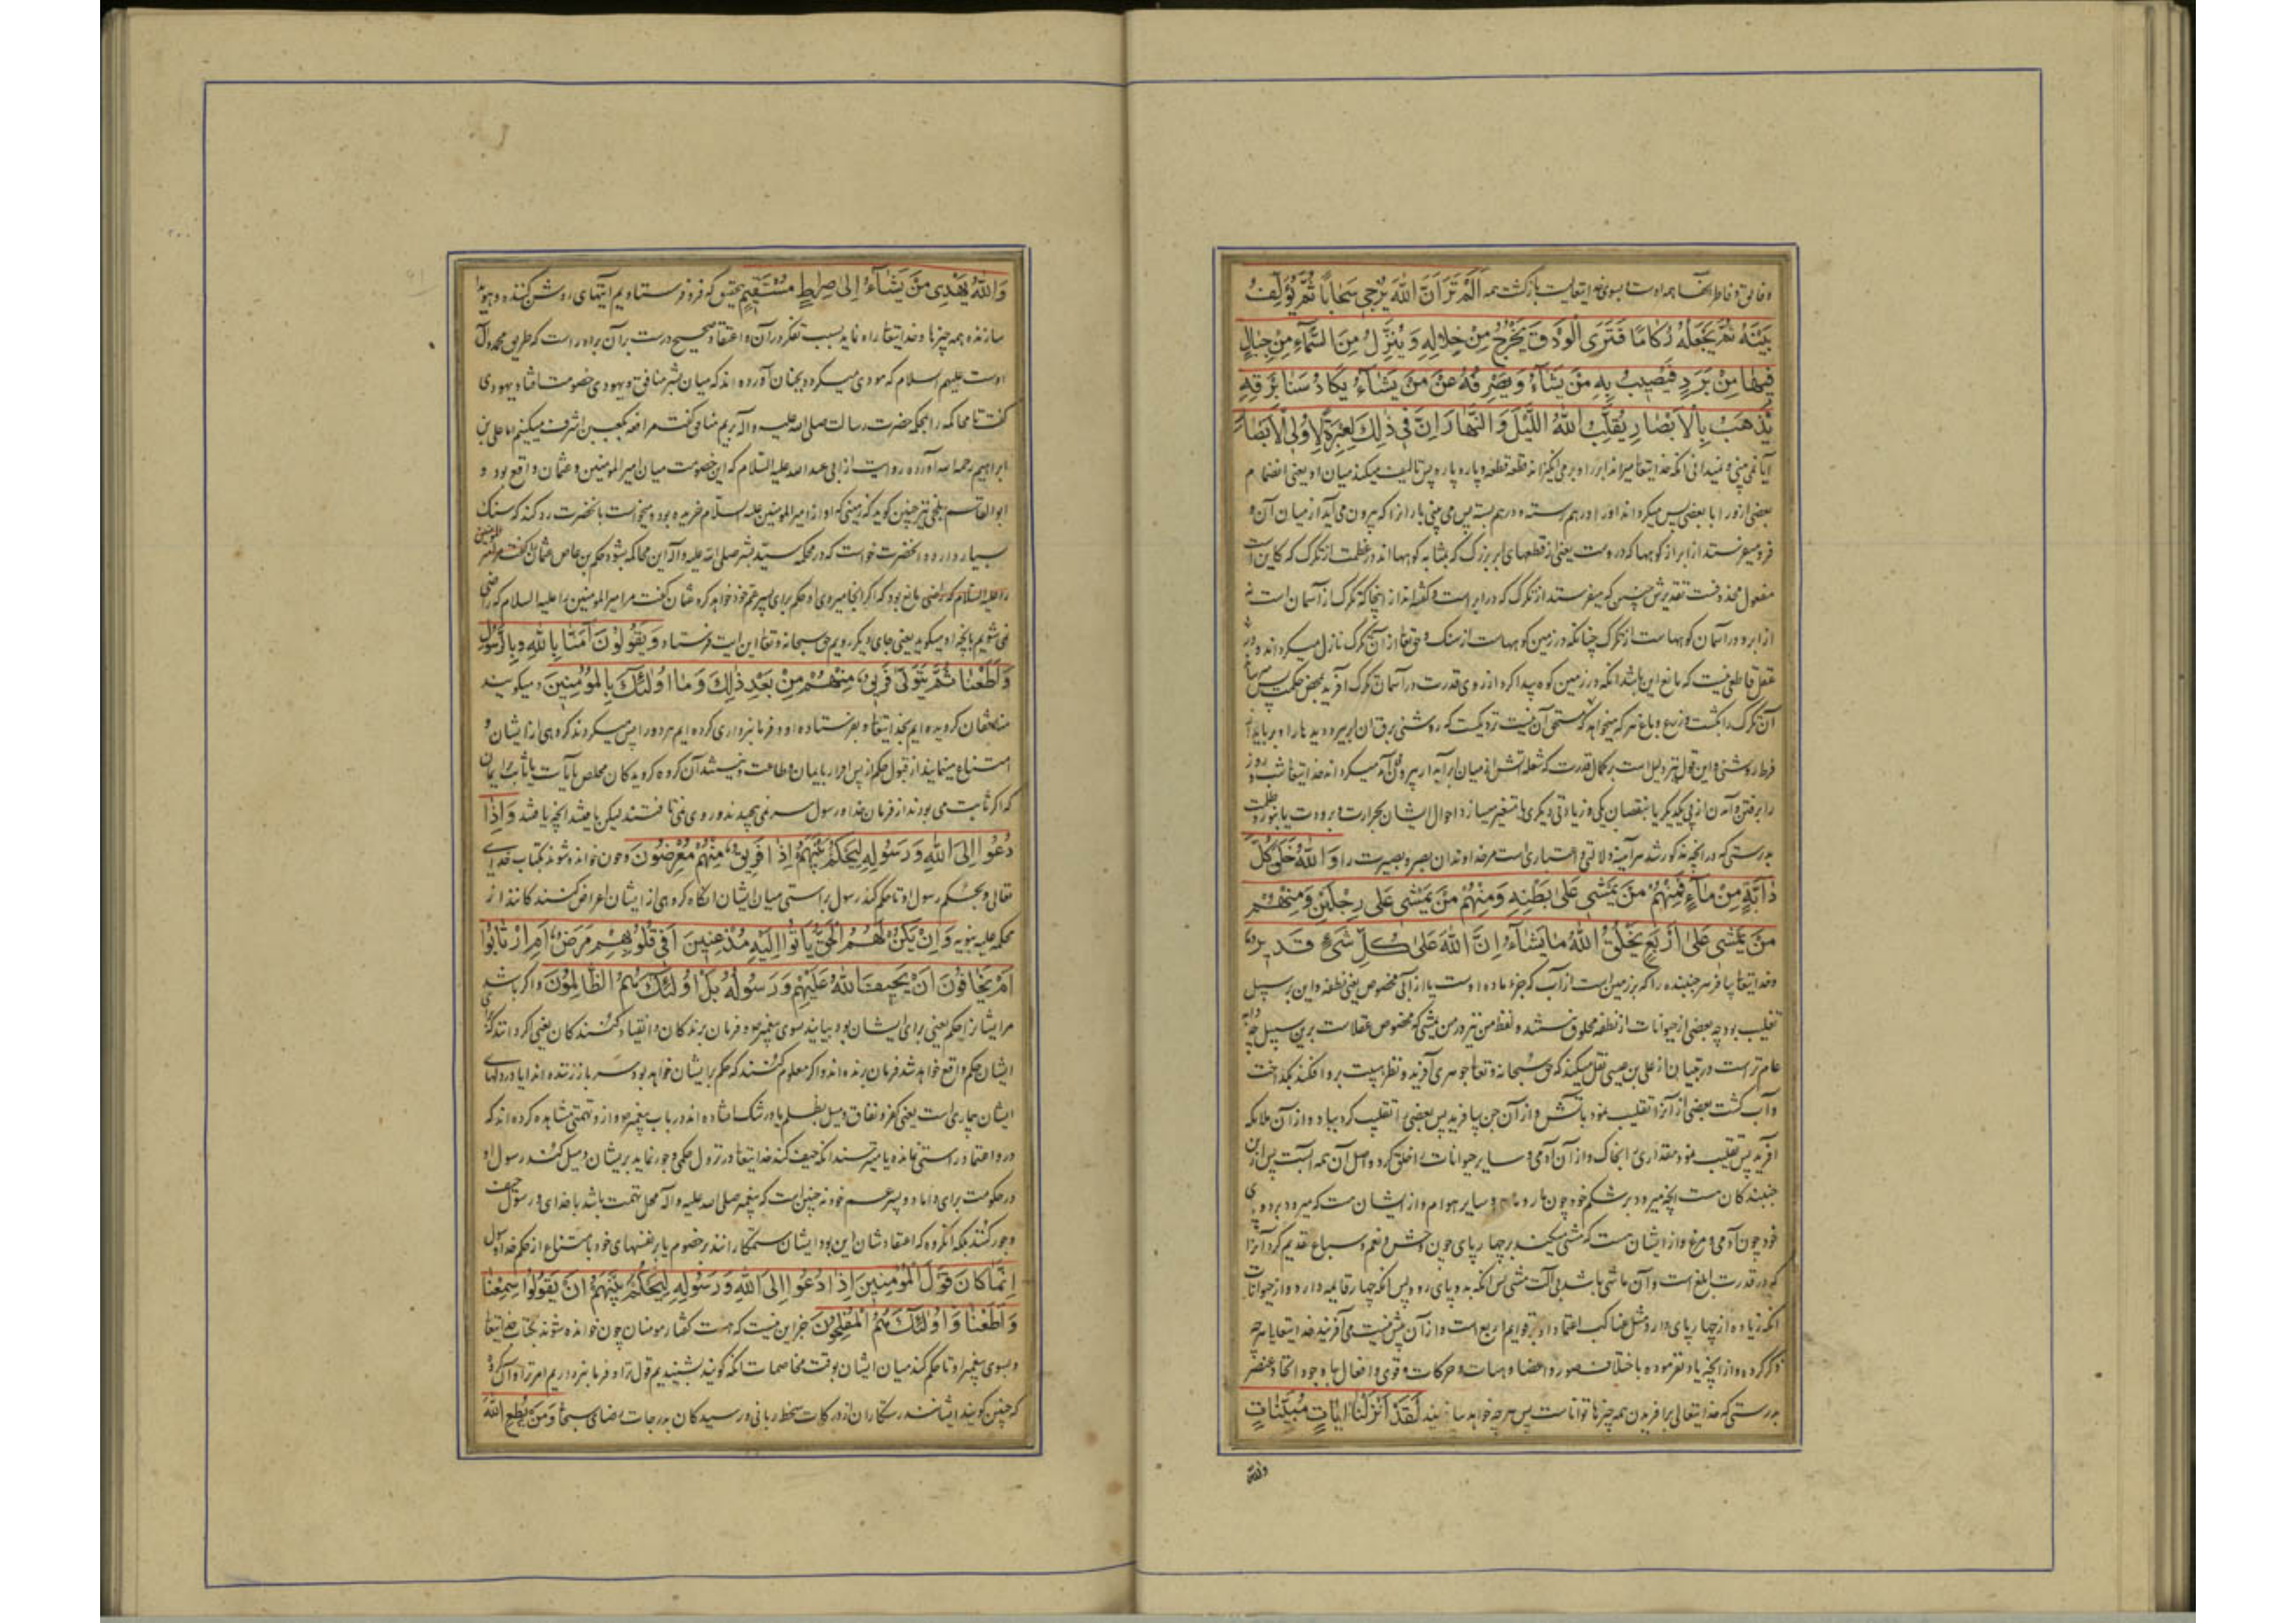 و خالق و فاطر آنها همه اوست و بسوی خدایتعالیست بازگشت همه اَلَمْ تَرَ اَنَّ اللهَ یُزْجی سَحاباً ثُمَّ یُؤَلِّفُ
بَیْنَهُ ثُمَّ یَجْعَلُهُ رُکاماً فَتَرَی الْوَدْقَ یَخْرُجُ مِنْ خِلالِهِ وَ یُنَزِّلُ مِنَ السَّماءِ مِنْ جِبالٍ
فیها مِنْ بَرَدٍ فَیُصیبُ بِهِ مَنْ یَشاءُ وَ یَصْرِفُهُ عَنْ مَنْ یَشاءُ یَکادُ سَنا بَرْقِهِ
یَذْهَبُ بِالْاَبْصارِ یُقَلِّبُ اللهُ اللَّیْلَ وَ النَّهارَ اِنَّ فی ذٰلِکَ لَعِبْرَةً لِاُولِی الْاَبْصارِ
آیا نمی بینی و نمیدانی آنکه خدایتعا میراند ابر را و بر می انگیزاند قطعه قطعه و پاره پاره پس تالیف میکند میان او یعنی انضمام
بعضی از او را با بعضی پس میگرداند او را درهم رسته و درهم بسته پس می بینی باران را که بیرون می آید از میان آن و
فرو میفرستد از ابر از کوهها که در اوست یعنی از قطعهای ابر بزرگ که بمشابه کوهها اند در عظمت از تگرک که کاین است
مفعول محذوفست تقدیرش چنین که میفرستد از تگرک که در ابر است و گفته اند از اینجا که تگرک از آسمان است نه
از ابر و در آسمان کوههاست از تگرک چنانکه در زمین کوههاست از سنک و حق تعا از آن تگرک نازل میگرداند و در
عقل قاطعی نیست که مانع این باشد آنکه در زمین کوه پیدا کرد از روی قدرت در آسمان تگرک آفرید بمحض حکمت پس
آن تگرک را بکشت و زرع و باغ هر که میخواهد که مستحق آن نیست نزدیکست که روشنی برق آن ابر ببرد دیدها را و برباید از
فرط روشنی و این قول نیز دلیل است بر کمال قدرت که شعله آتش از میان ابر آبدار بیرون آید میگرداند خدایتعا شب و روز
را برفتن و آمدن از پی یکدیگر یا بنقصان یکی و زیادتی دیگری یا متغیر میسازد احوال ایشان بحرارت و برودت یا بنور و ظلمت
بدرستی که در آنچه مذکور شد هر آینه دلالتی و اعتباری است مر خداوندان بصر و بصیرت را وَ اللهُ خَلَقَ کُلَّ
دابَّةٍ مِنْ ماءٍ فَمِنْهُمْ مَنْ یَمْشی عَلی بَطْنِهِ وَ مِنْهُمْ مَنْ یَمْشی عَلی رِجْلَیْنِ وَ مِنْهُمْ
مَنْ یَمْشی عَلی اَرْبَعٍ یَخْلُقُ اللهُ ما یَشاءُ اِنَّ اللهَ عَلی کُلِّ شَیْءٍ قَدیرٌ
و خدایتعا بیافرید هر جنبنده را که بر زمین است از آب که جزء ماده اوست یا از آبی مخصوص یعنی نطفه و این بر سبیل
تغلیب بود چه بعضی از حیوانات از نطفه مخلوق نیستند و لفظ من نیز در من یمشی که مخصوص عقلاست برین سبیل چه دابه
عام تر است و در تبیان از علی بن عیسی نقل میکند که حق سبحانه و تعا جوهری آفرید و نظر هیبت بر و افکند بگداخت
و آب گشت بعضی از آنرا تقلیب نمود بآتش و از آن جن بیافرید پس بعضی را تقلیب کرد بباد و از آن ملائکه
آفرید پس تقلیب نمود مقداری را بخاک و از آن آدمی و سایر حیوانات را خلق کرد و اصل آن همه آبست پس از این
جنبندگان هست آنچه میرود بر شکم خود چون مار و ماهی و سایر هوام و از ایشان هست که میرود بر دو پای
خود چون آدمی و مرغ و از ایشان هست که مشی میکند بر چهار پای چون وحش و نعم و سباع تقدیم کرد آنرا
که در قدرت ابلغ است و آن ماشی باشد بی آلت مشی پس آنکه به دو پای رود پس آنکه چهار قایمه دارد و از حیوانات
آنکه زیاده از چهار پای دارد مثل عناکب اعتماد او بر قوایم اربع است و از آن بیش نیست می آفریند خدایتعا هر چه
ذکر کرده و از آنچه یاد نفرموده باختلاف صور و اعضا و هیات و حرکات و قوی و افعال با وجود اتحاد عنصر
بدرستی که خدایتعالی بر آفریدن همه چیزها تواناست پس هر چه خواهد سازد لَقَدْ اَنْزَلْنا ایاتٍ مُبَیِّناتٍ
والله
وَ اللهُ یَهْدی مَنْ یَشاءُ اِلی صِراطٍ مُسْتَقیمٍ بتحقیق که فرو فرستادیم آیتهای روشن کننده و هویدا
سازنده همه چیزها و خدایتعا راه نماید بسبب تفکر در آن و اعتقاد صحیح درست بر آن براه راست که طریق محمد و آل
اوست علیهم السلام که مودی میگردد بجنان آورده اند که میان بشر منافق و یهودی خصومت افتاد یهودی
گفت تا محاکمه را بمحکمه حضرت رسالت صلی الله علیه و آله بریم منافق گفت مرافعه بکعب بن اشرف میکنیم اما علی بن
ابراهیم رحمه الله آورده روایت از ابی عبدالله علیه السلام که این خصومت میان امیرالمومنین و عثمان واقع بود و
ابوالقاسم بلخی نیز چنین گوید که زمینی که او از امیرالمومنین علیه السلام خریده بود و میخواست بآنحضرت رد کند که سنک
بسیار دارد و آنحضرت خواست که در محکمه سید بشر صلی الله علیه و آله این محاکمه بشود حکم بن عاص عثمان را گفت مر امیر المومنین
را علیه السلام که راضی مانع بود که اگر آنجا میروی او حکم برای پسر عم خود خواهد کرد عثمان گفت مر امیرالمومنین را علیه السلام که راضی
نمی شویم بآنچه او میگوید یعنی جای دیگر رویم حق سبحانه و تعا این ایت فرستاد وَ یَقُولُونَ آمَنّا بِاللهِ وَ بِالرَّسُولِ
وَ اَطَعْنا ثُمَّ یَتَوَلّی فَریقٌ مِنْهُمْ مِنْ بَعْدِ ذٰلِکَ وَ ما اُولٰئِکَ بِالْمُؤْمِنینَ و میگویند
منافقان گرویده ایم بخدایتعا و بفرستاده او و فرمانبرداری کرده ایم هر دو را پس میگردند گروهی از ایشان و
امتناع مینمایند از قبول حکم از پس اقرار بایمان و طاعت و نیستند آن گروه گرویدگان مخلص یا ثابت بر ایمان
که اگر ثابت می بودند از فرمان خدا و رسول سر نمی پیچیدند و روی نمی تافتند لیکن یافتند آنچه یافتند وَ اِذا
دُعُوا اِلَی اللهِ وَ رَسُولِهِ لِیَحْکُمَ بَیْنَهُمْ اِذا فَریقٌ مِنْهُمْ مُعْرِضُونَ و چون خوانده شوند بکتاب خدای
تعالی و بحکم رسول او تا حکم کند رسول براستی میان ایشان آنگاه گروهی از ایشان اعراض کنندگانند از
محکمه علیه نبویه وَ اِنْ یَکُنْ لَهُمُ الْحَقُّ یَأْتُوا اِلَیْهِ مُذْعِنینَ اَفی قُلُوبِهِمْ مَرَضٌ اَمِ ارْتابُوا
اَمْ یَخافُونَ اَنْ یَحیفَ اللهُ عَلَیْهِمْ وَ رَسُولُهُ بَلْ اُولٰئِکَ هُمُ الظّالِمُونَ و اگر باشد
مر ایشان را حکم یعنی برای ایشان بود بیایند سوی پیغمبر ص و فرمان برندگان و انقیاد کنندگان یعنی اگر دانند که
ایشان حکم واقع خواهد شد فرمان برنده اند و اگر معلوم کنند که حکم بر ایشان خواهد بود سر باز زننده اند ایا در دلهای
ایشان بیماری است یعنی کفر و نفاق و میل بظلم یا در شک افتاده اند در باب پیغمبر ص و از و تهمتی مشاهده کرده اند که
در و اعتماد راستی نمانده یا میترسند آنکه حیف کند خدایتعا در نزول حکمی و جور نماید بریشان و میل کند رسول او
در حکومت برای داماد و پسر عم خود نه چنین است که پیغمبر صلی الله علیه و آله محل تهمت باشد یا خدای و رسول حیف
و جور کنند بلکه آنگروه که اعتقادشان این بود ایشان ستمکارانند بر خصوم یا بر نفسهای خود بامتناع از حکم خدا و رسول
اِنَّما کانَ قَوْلَ الْمُؤْمِنینَ اِذا دُعُوا اِلَی اللهِ وَ رَسُولِهِ لِیَحْکُمَ بَیْنَهُمْ اَنْ یَقُولُوا سَمِعْنا
وَ اَطَعْنا وَ اُولٰئِکَ هُمُ الْمُفْلِحُونَ جز این نیست که هست گفتار مومنان چون خوانده شوند بکتاب خدایتعا
و بسوی پیغمبر او تا حکم کند میان ایشان بوقت مخاصمات آنکه گویند بشنیدیم قول ترا و فرمانبرداریم امر ترا و آن گروه
که چنین گویند ایشانند رستگاران از درکات سخط ربانی و رسیدگان بدرجات رضای سبحانی وَ مَنْ یُطِعِ اللهَ